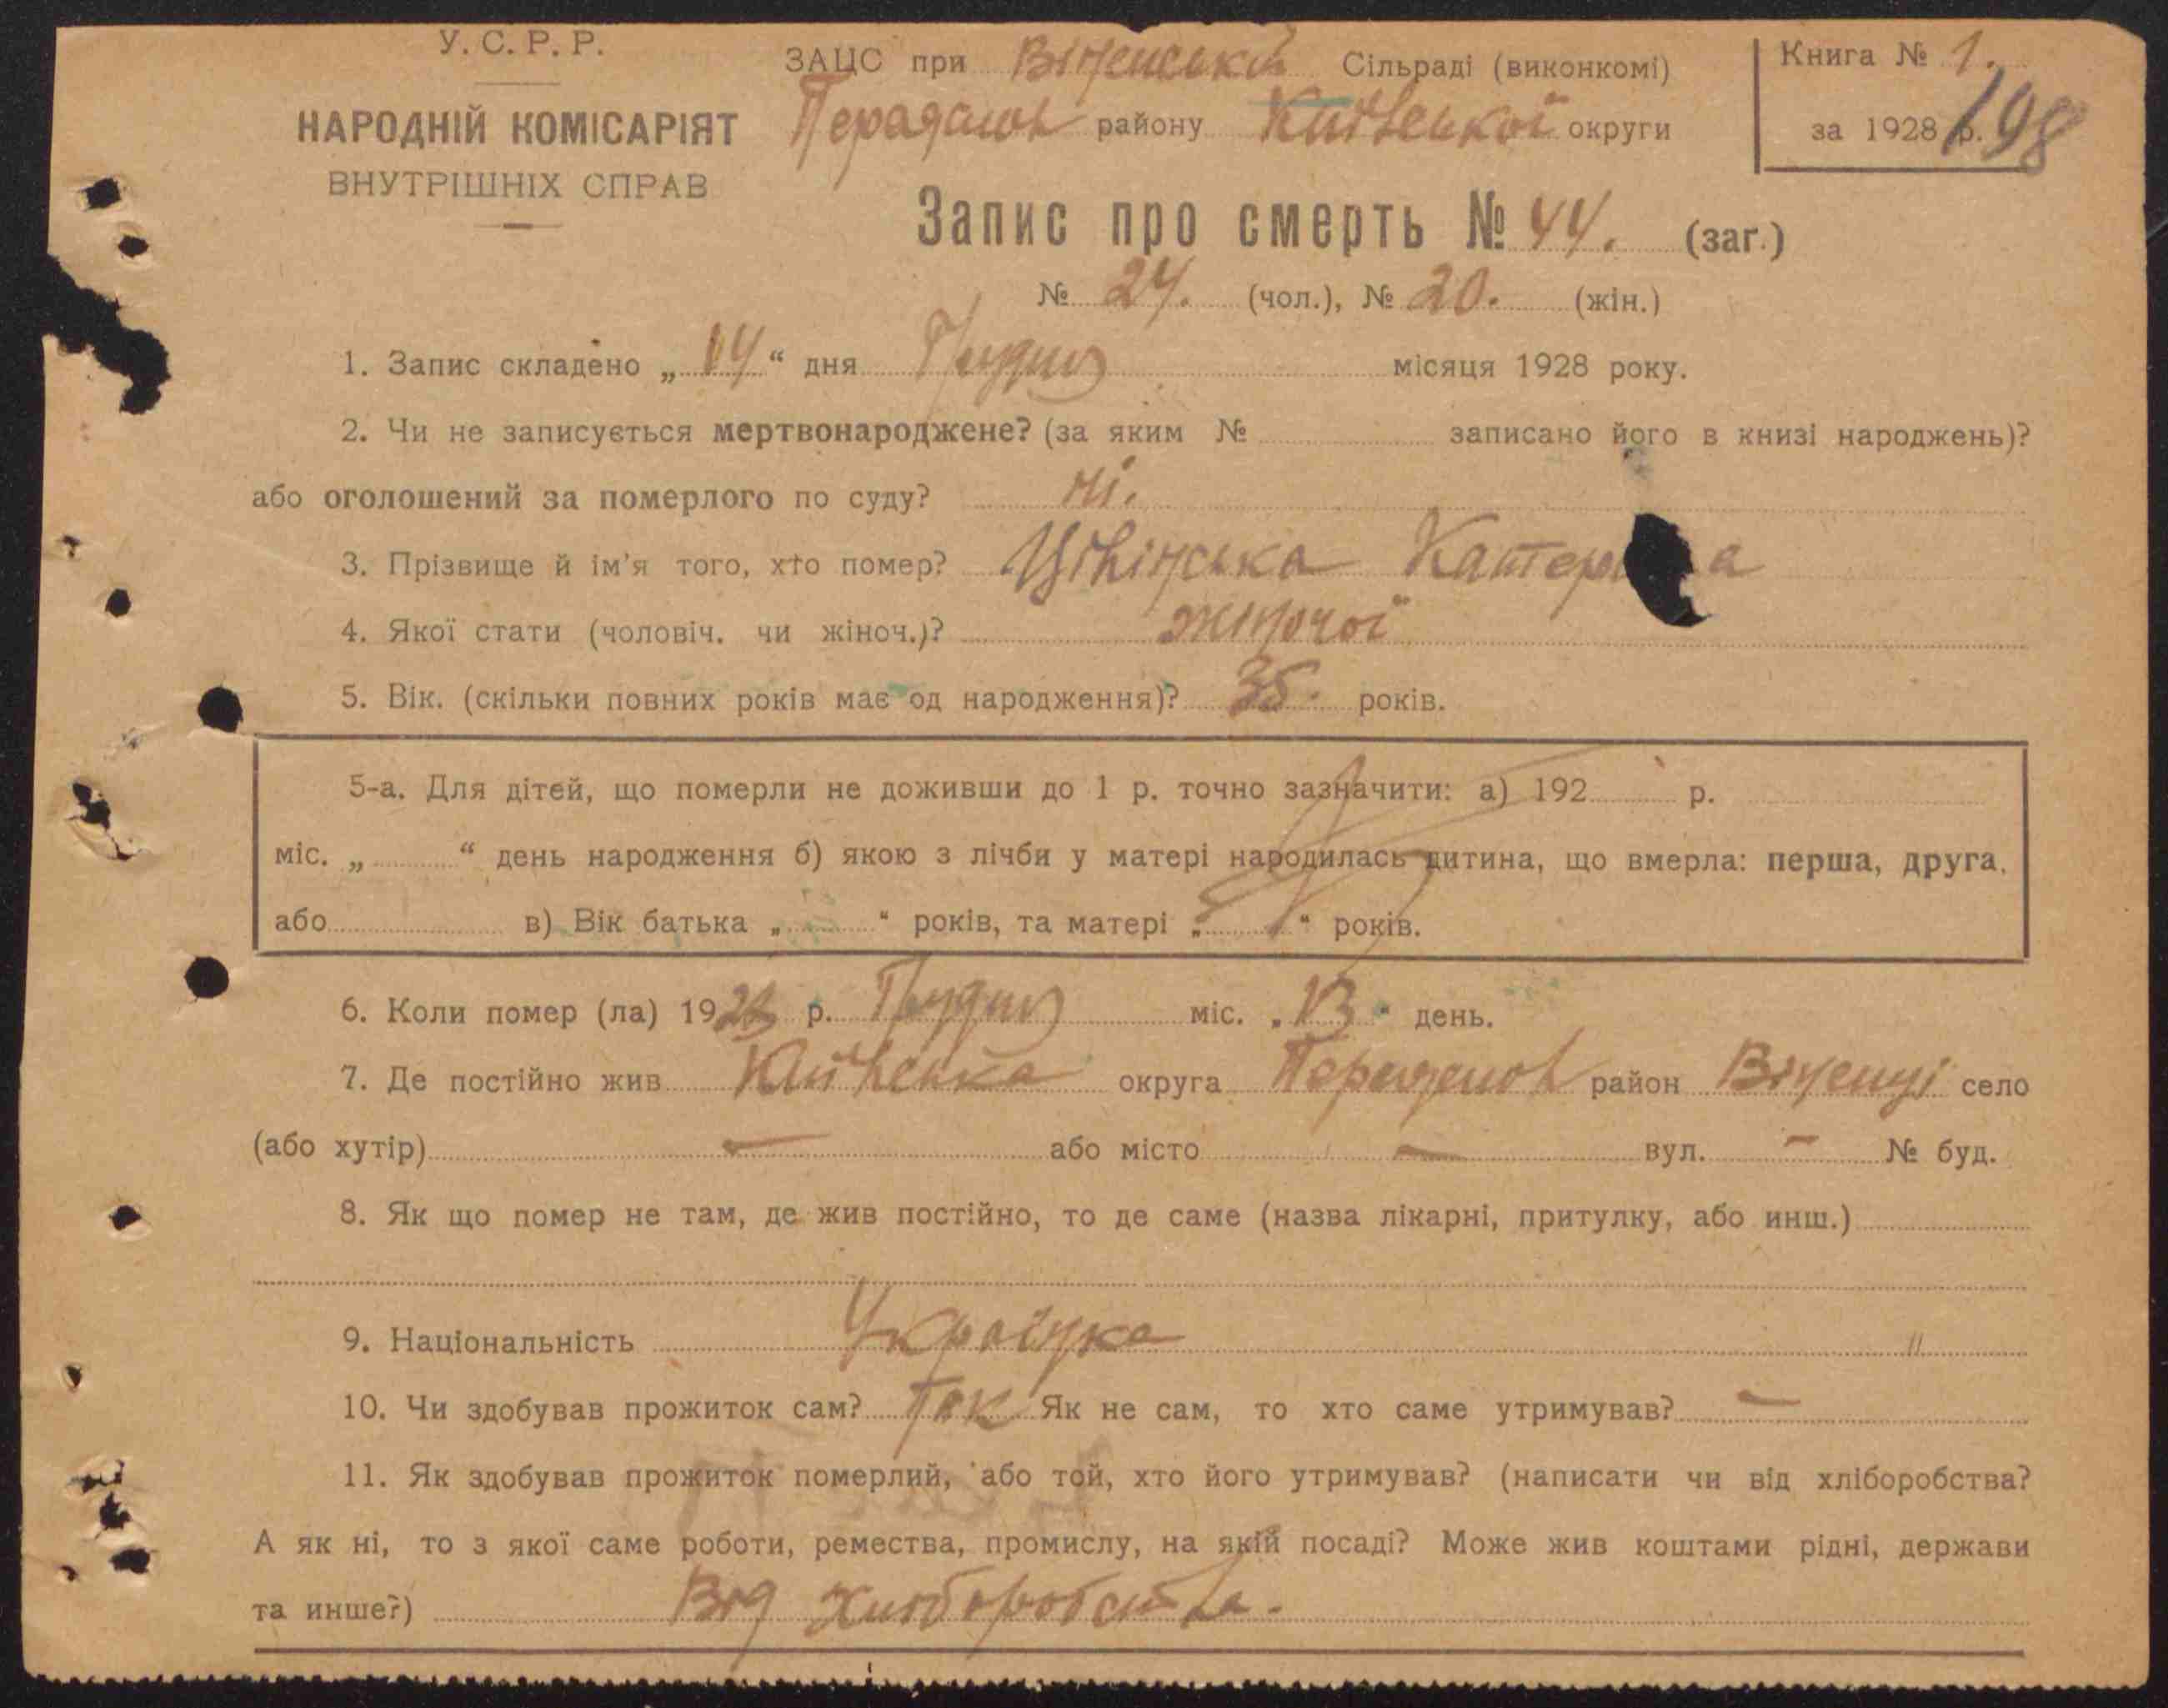 У. С. Р. Р.
НАРОДНІЙ КОМІСАРІЯТ
ВНУТРІШНІХ СПРАВ
ЗАЦС при Віненській Сільраді (виконкомі)
району Київської округи
Книга № 1.
за 1928 р. 198
Запис про смерть № 44. (заг.)
№ 24. (чол.), № 20. (жін.)
1. Запис складено „14“ дня Грудня місяця 1928 року.
2. Чи не записується мертвонароджене? (за яким № записано його в книзі народжень)?
або оголошений за померлого по суду? ні.
3. Прізвище й ім'я того, хто помер? Катерина
4. Якої стати (чоловіч. чи жіноч.)? жіночої
5. Вік. (скільки повних років має од народження)? 35. років.
5-а. Для дітей, що померли не доживши до 1 р. точно зазначити: а) 192 р.
міс. „ “ день народження б) якою з лічби у матері народилась дитина, що вмерла: перша, друга,
або в) Вік батька „ “ років, та матері „ “ років.
6. Коли помер (ла) 1928 р. Грудня міс. „13“ день.
7. Де постійно жив Київська округа район село
(або хутір) — або місто — вул. — № буд.
8. Як що помер не там, де жив постійно, то де саме (назва лікарні, притулку, або инш.)
9. Національність Українка "
10. Чи здобував прожиток сам? Так Як не сам, то хто саме утримував? —
11. Як здобував прожиток померлий, або той, хто його утримував? (написати чи від хліборобства?
А як ні, то з якої саме роботи, ремества, промислу, на якій посаді? Може жив коштами рідні, держави
та инше?) Від хліборобства.